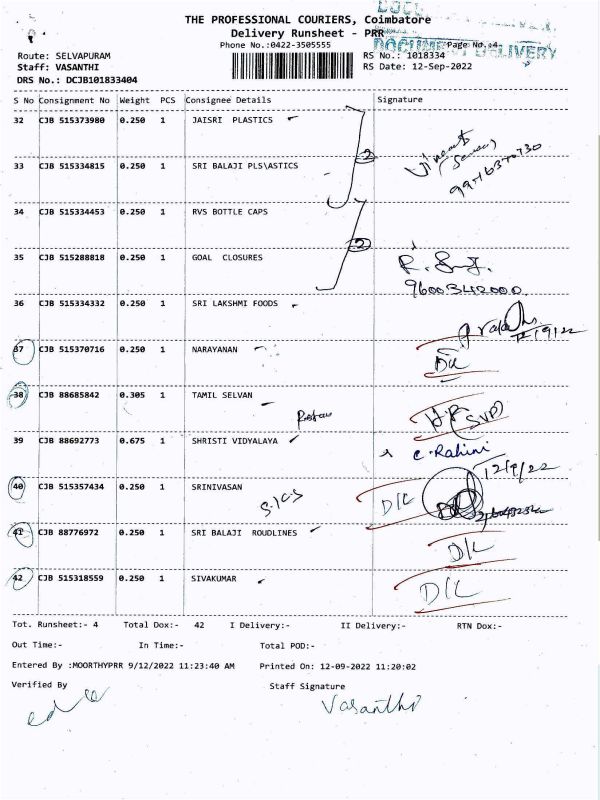 THE PROFESSIONAL COURIERS, Coimbatore
Delivery Runsheet - PRR
Phone No.:0422-3505555
Page No. 4
DOCUMENT DELIVERY
Route: SELVAPURAM
RS No.: 1018334
Staff: VASANTHI
RS Date: 12-Sep-2022
DRS No.: DCJB101833404
S No Consignment No Weight PCS Consignee Details Signature
32 CJB 515373980 0.250 1 JAISRI PLASTICS
2
33 CJB 515334815 0.250 1 SRI BALAJI PLS\ASTICS
34 CJB 515334453 0.250 1 RVS BOTTLE CAPS
2
35 CJB 515288818 0.250 1 GOAL CLOSURES
9600342000
36 CJB 515334332 0.250 1 SRI LAKSHMI FOODS
12/9/22
37 CJB 515370716 0.250 1 NARAYANAN D/L
38 CJB 88685842 0.305 1 TAMIL SELVAN
39 CJB 88692773 0.675 1 SHRISTI VIDYALAYA C. Rahini
12/9/22
40 CJB 515357434 0.250 1 SRINIVASAN D/L
41 CJB 88776972 0.250 1 SRI BALAJI ROUDLINES D/L
42 CJB 515318559 0.250 1 SIVAKUMAR D/L
Tot. Runsheet:- 4 Total Dox:- 42 I Delivery:- II Delivery:- RTN Dox:-
Out Time:- In Time:- Total POD:-
Entered By :MOORTHYPRR 9/12/2022 11:23:40 AM Printed On: 12-09-2022 11:20:02
Verified By Staff Signature
Vasanthi